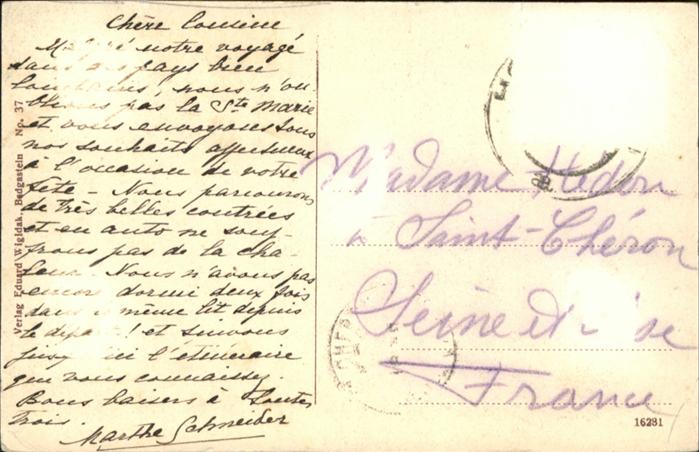 Chère Cousine
notre voyage
dans des pays bien
lointains, nous n'ou-
blions pas la Ste Marie
et vous envoyons tous
nos souhaits affectueux
à l'occasion de votre
fête - Nous parcourons
de très belles contrées
et en auto ne souf-
frons pas de la cha-
leur. Nous n'avons pas
encore dormi deux fois
dans même lit depuis
le départ! et suivons
l'itinéraire
que vous connaissez.
Bons baisers à toutes
trois.
Marthe Schneider
Verlag Eduard Wigidak, Badgastein No. 37
Madame Hédou
à Saint-Chéron
Seine et Oise
France
16281